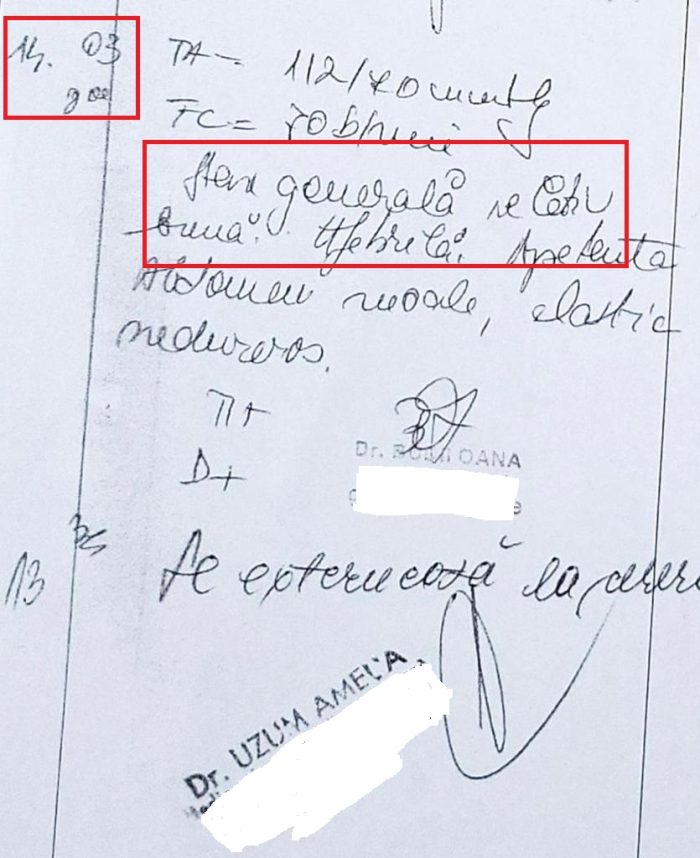 14. 03
TA = 112/70 mmHg
FC = 70 b/min
Stare generală relativ
bună. Afebrilă. Apetentă
Abdomen moale, elastic
nedureros.
TT+
D+
Dr. OANA
13 35
Se externează la cerere
Dr. UZUM AMELIA